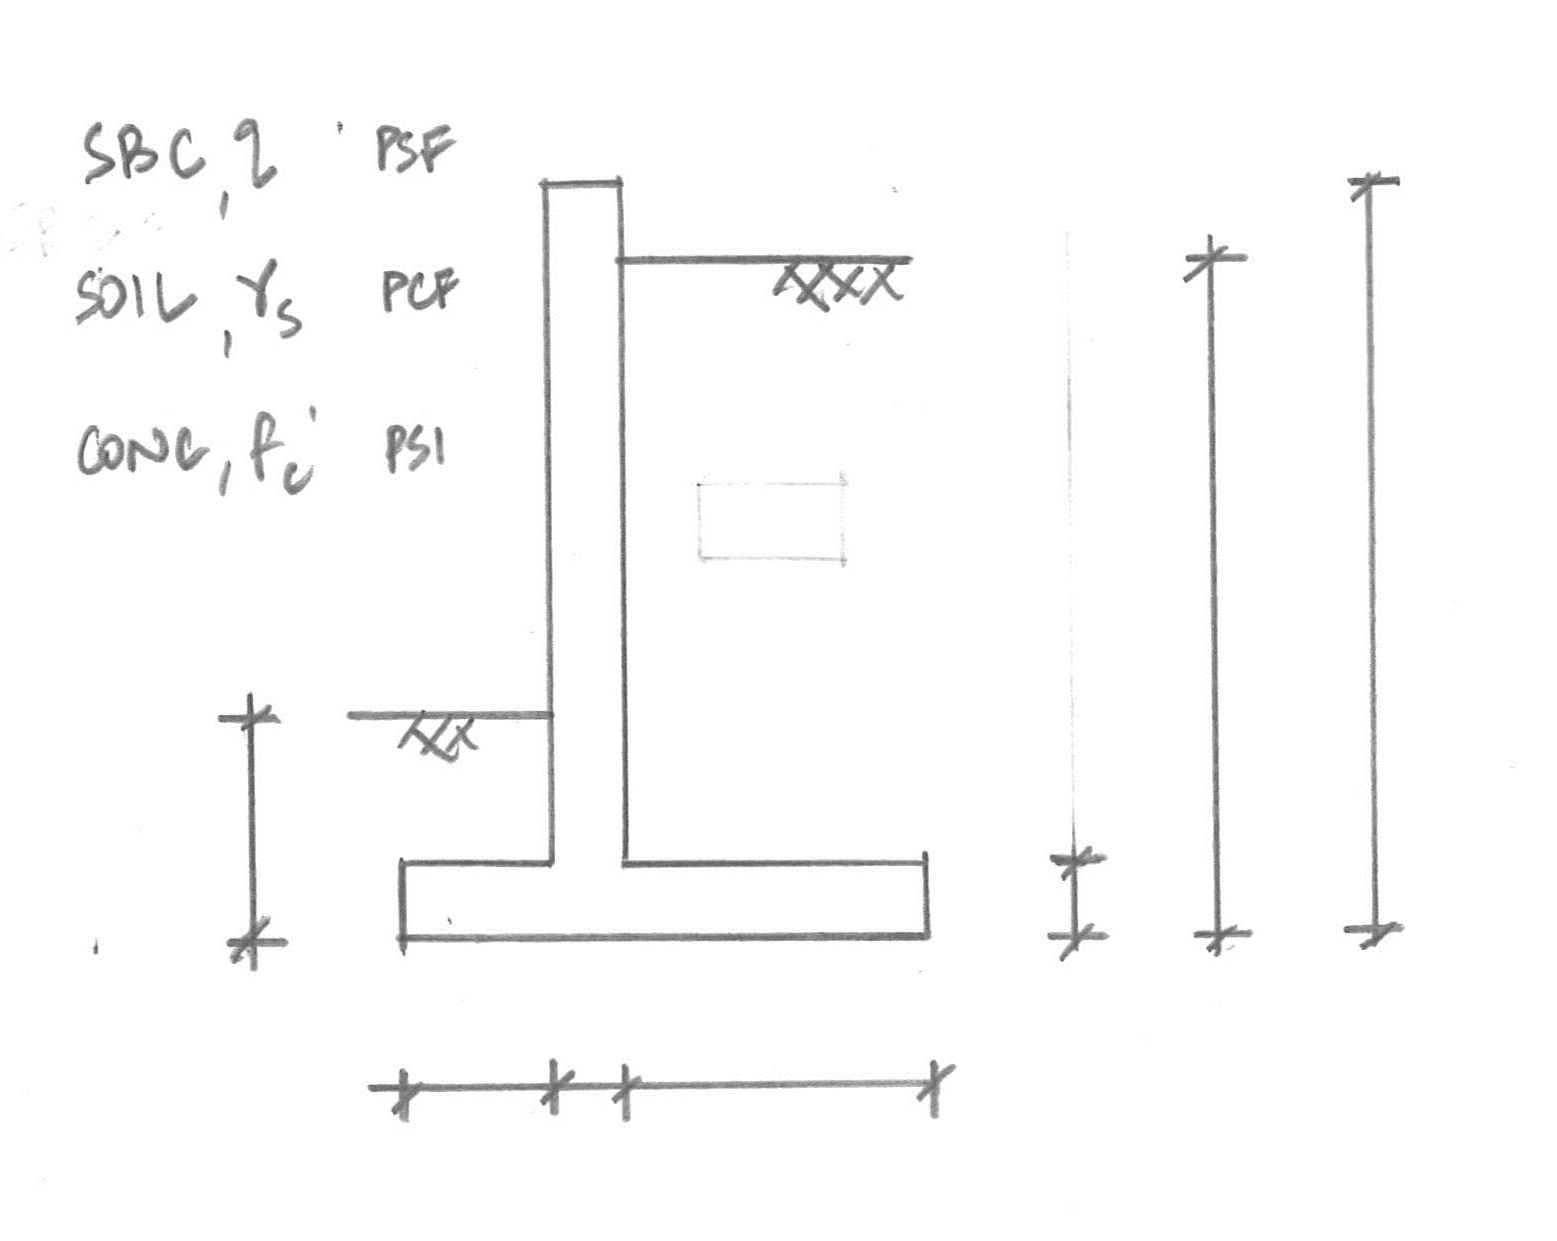 SBC, q PSF
SOIL, γs PCF
CONC, fc' PSI